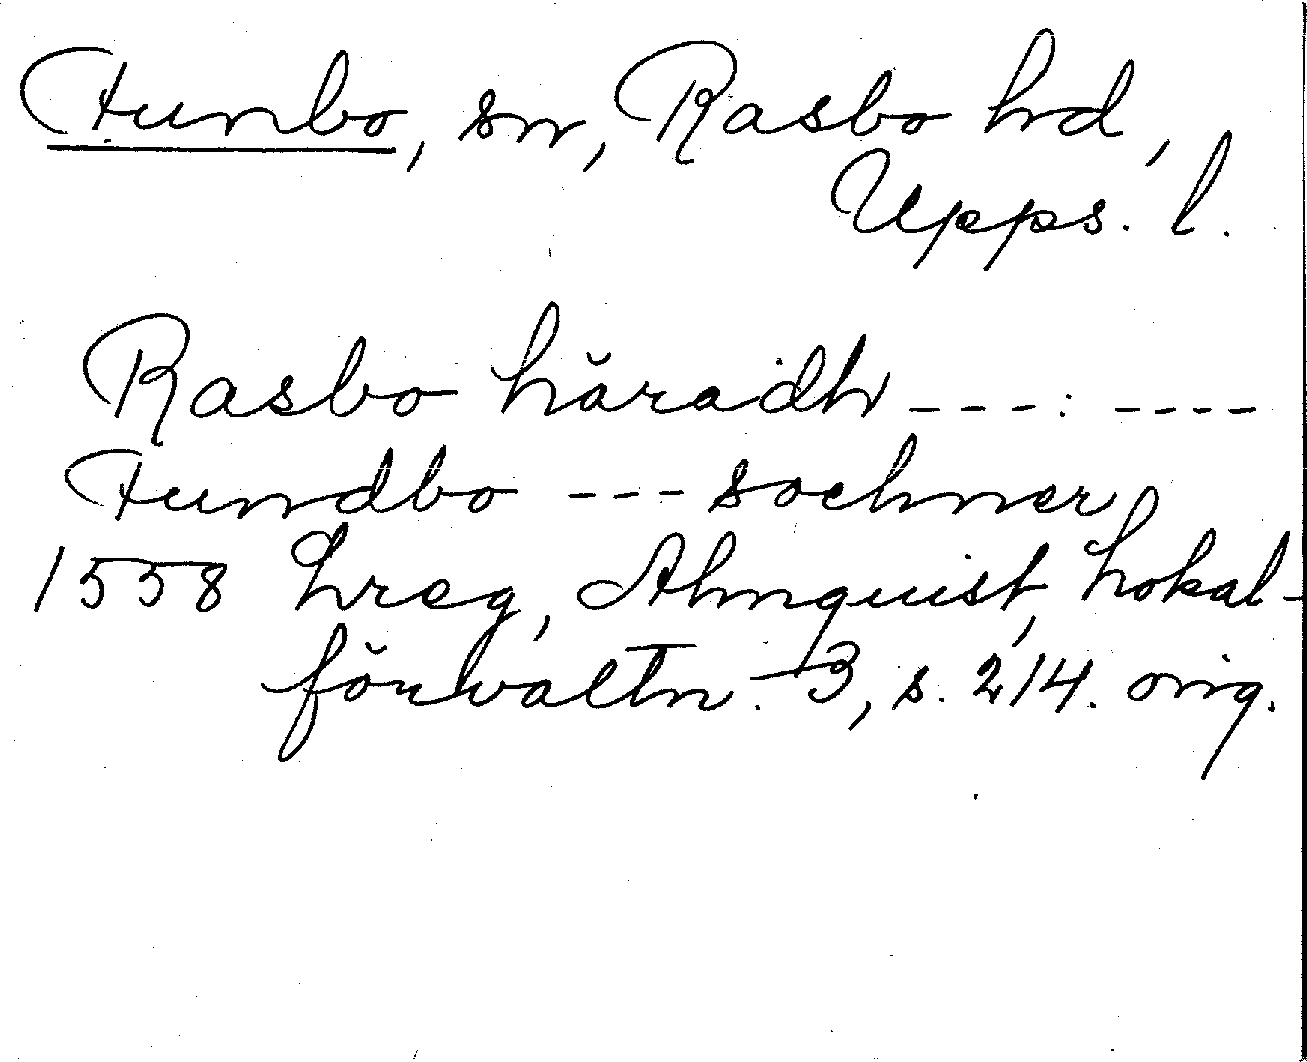 Funbo, sn, Rasbo hd,
Upps. l.
Rasbo häradh ---: ----
Fundbo --- sochner
1558 hreg, Almquist, Lokal-
förvaltn. 3, s. 214. orig.